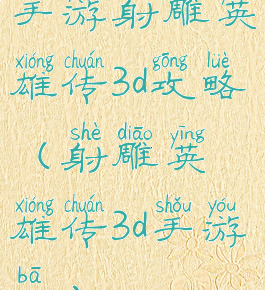 手游射雕英
xióng chuán gōng lüè
雄传3d攻略
shè diāo yīng
(射雕英
xióng chuán shǒu yóu
雄传3d手游
bā